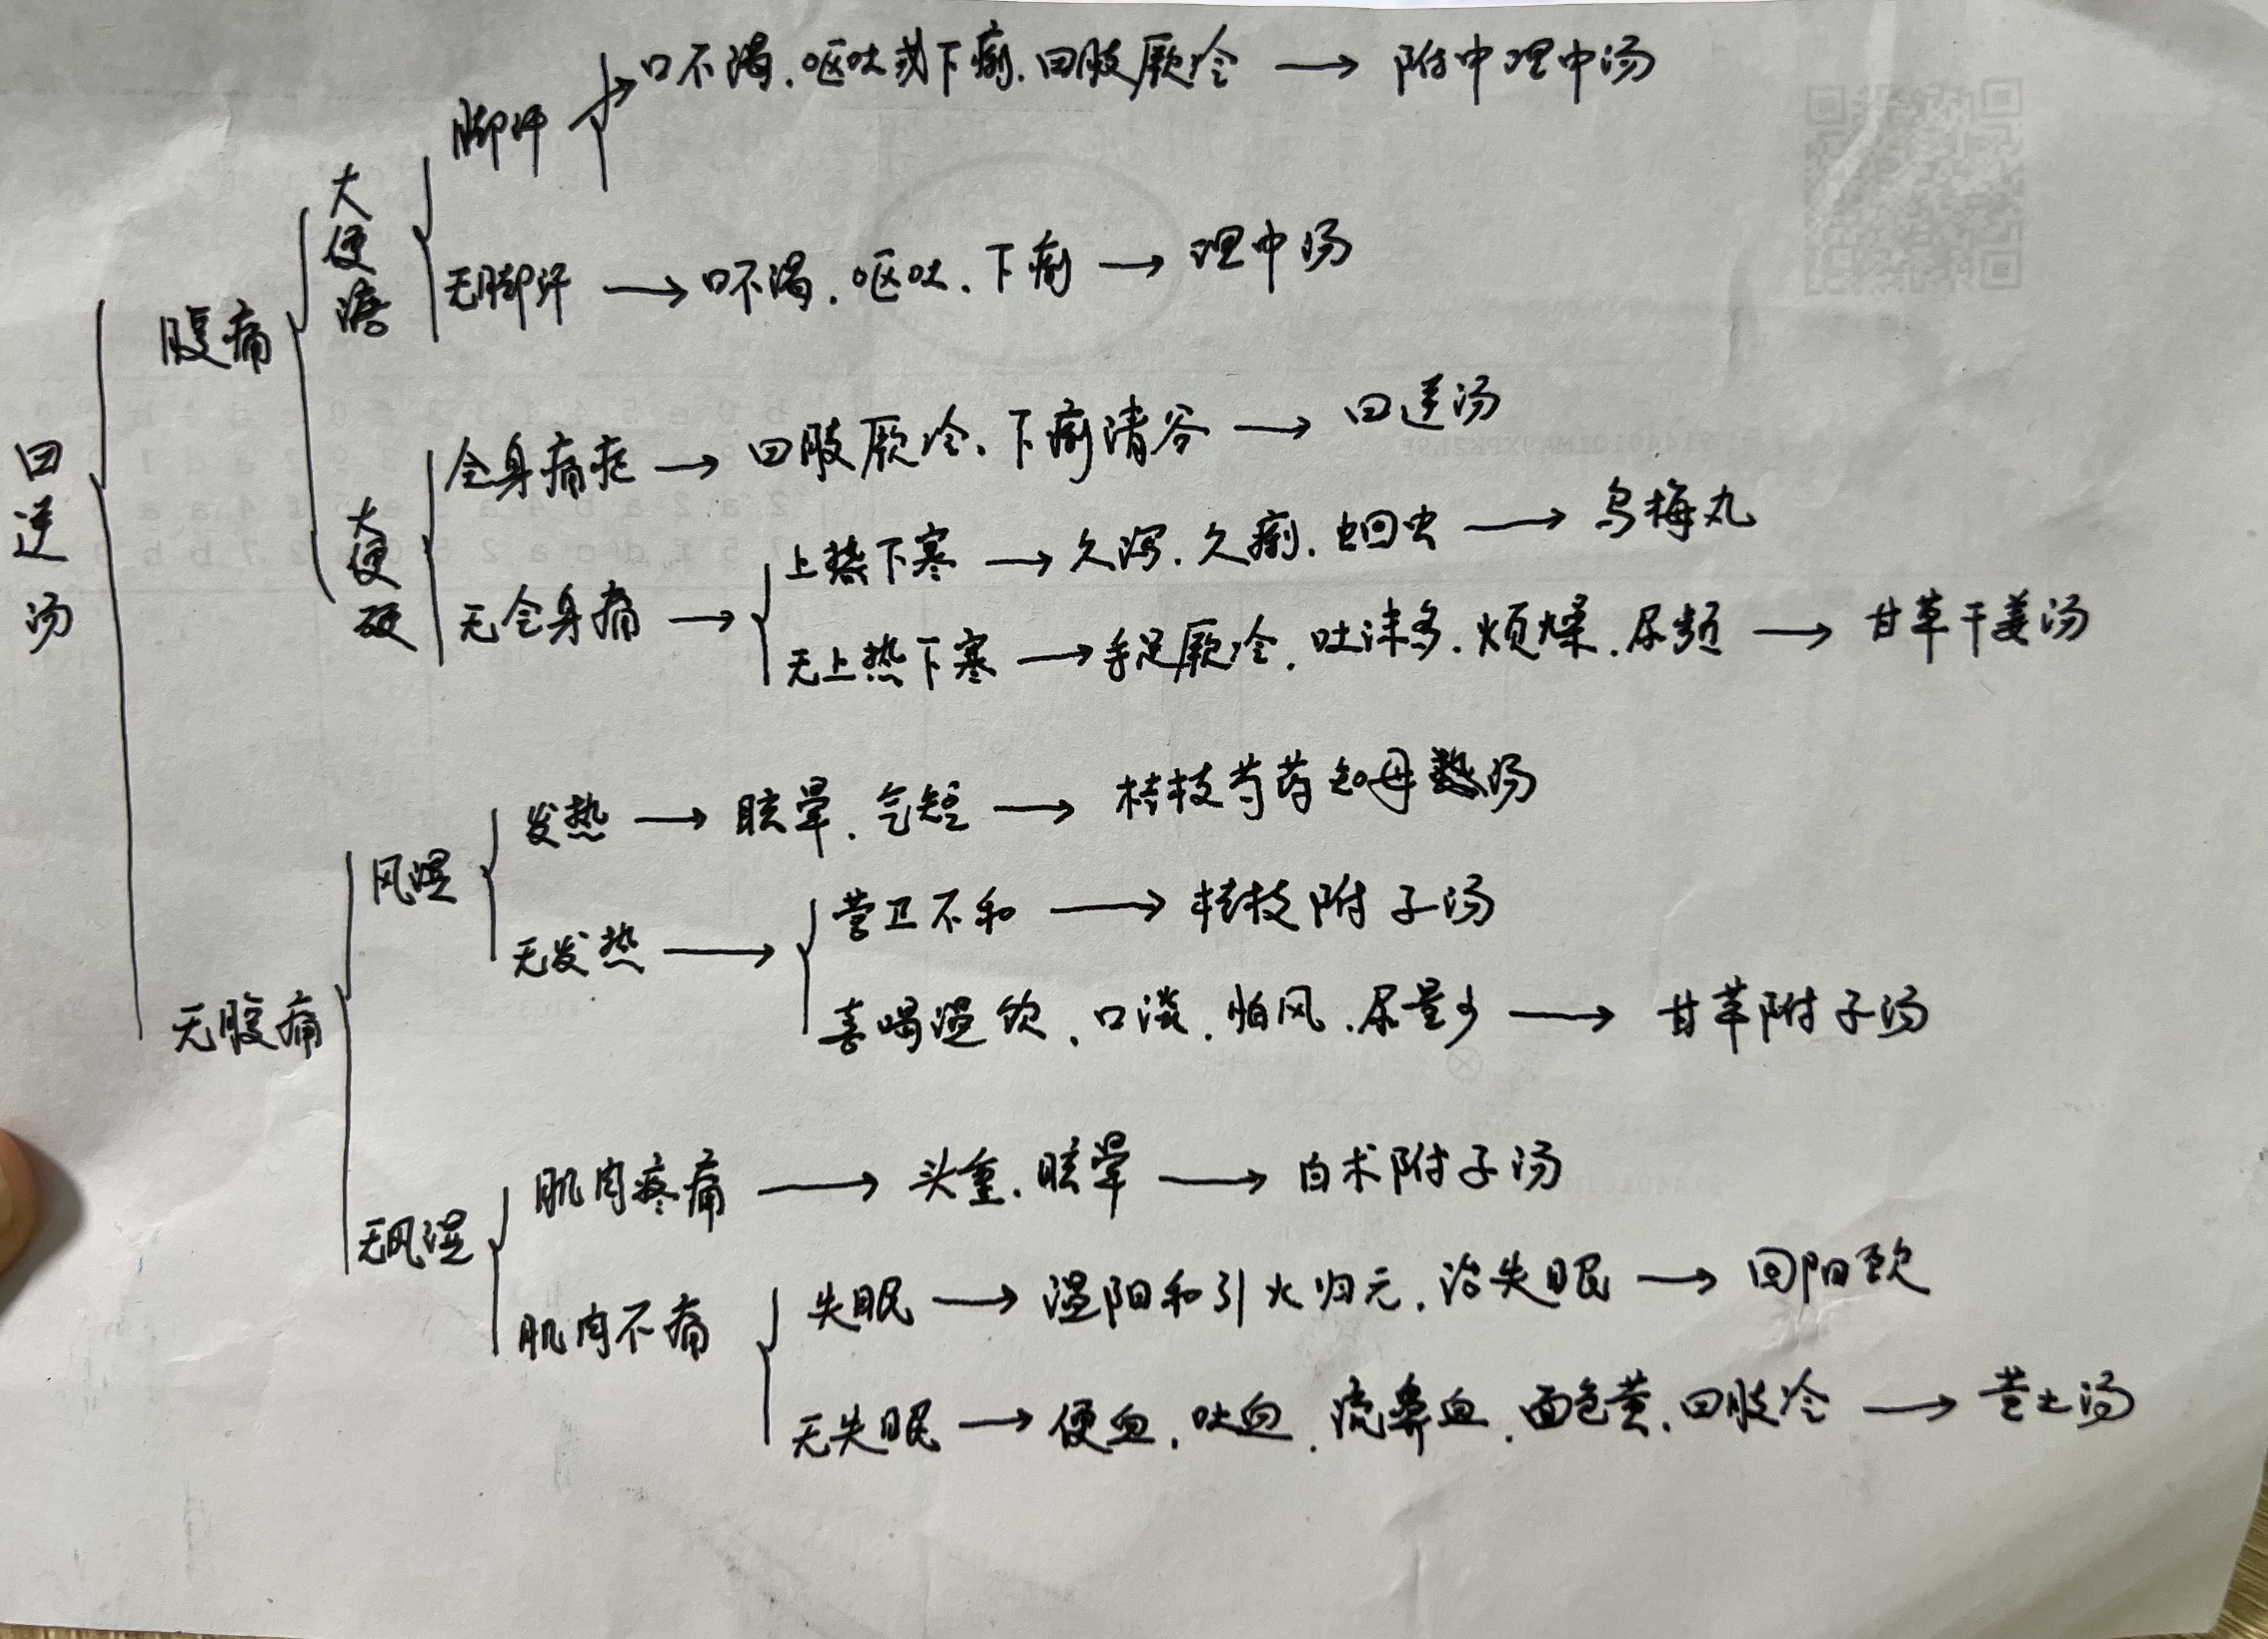 脚汗 口不渴.呕吐或下痢.四肢厥冷 → 附中理中汤
大便溏
无脚汗 → 口不渴.呕吐.下痢 → 理中汤
腹痛
全身痛疼 → 四肢厥冷、下痢清谷 → 四逆汤
大便硬
上热下寒 → 久泻.久痢.蛔虫 → 乌梅丸
无全身痛 →
无上热下寒 → 手足厥冷.吐沫多.烦燥.尿频 → 甘草干姜汤
四逆汤
发热 → 眩晕.气短 → 桂枝芍药知母汤
风湿
营卫不和 → 桂枝附子汤
无发热 →
喜喝温饮、口淡.怕风.尿量少 → 甘草附子汤
无腹痛
肌肉疼痛 → 头重.眩晕 → 白术附子汤
无风湿
失眠 → 温阳和引火归元.治失眠 → 回阳饮
肌肉不痛
无失眠 → 便血.吐血.流鼻血.面色黄.四肢冷 → 黄土汤